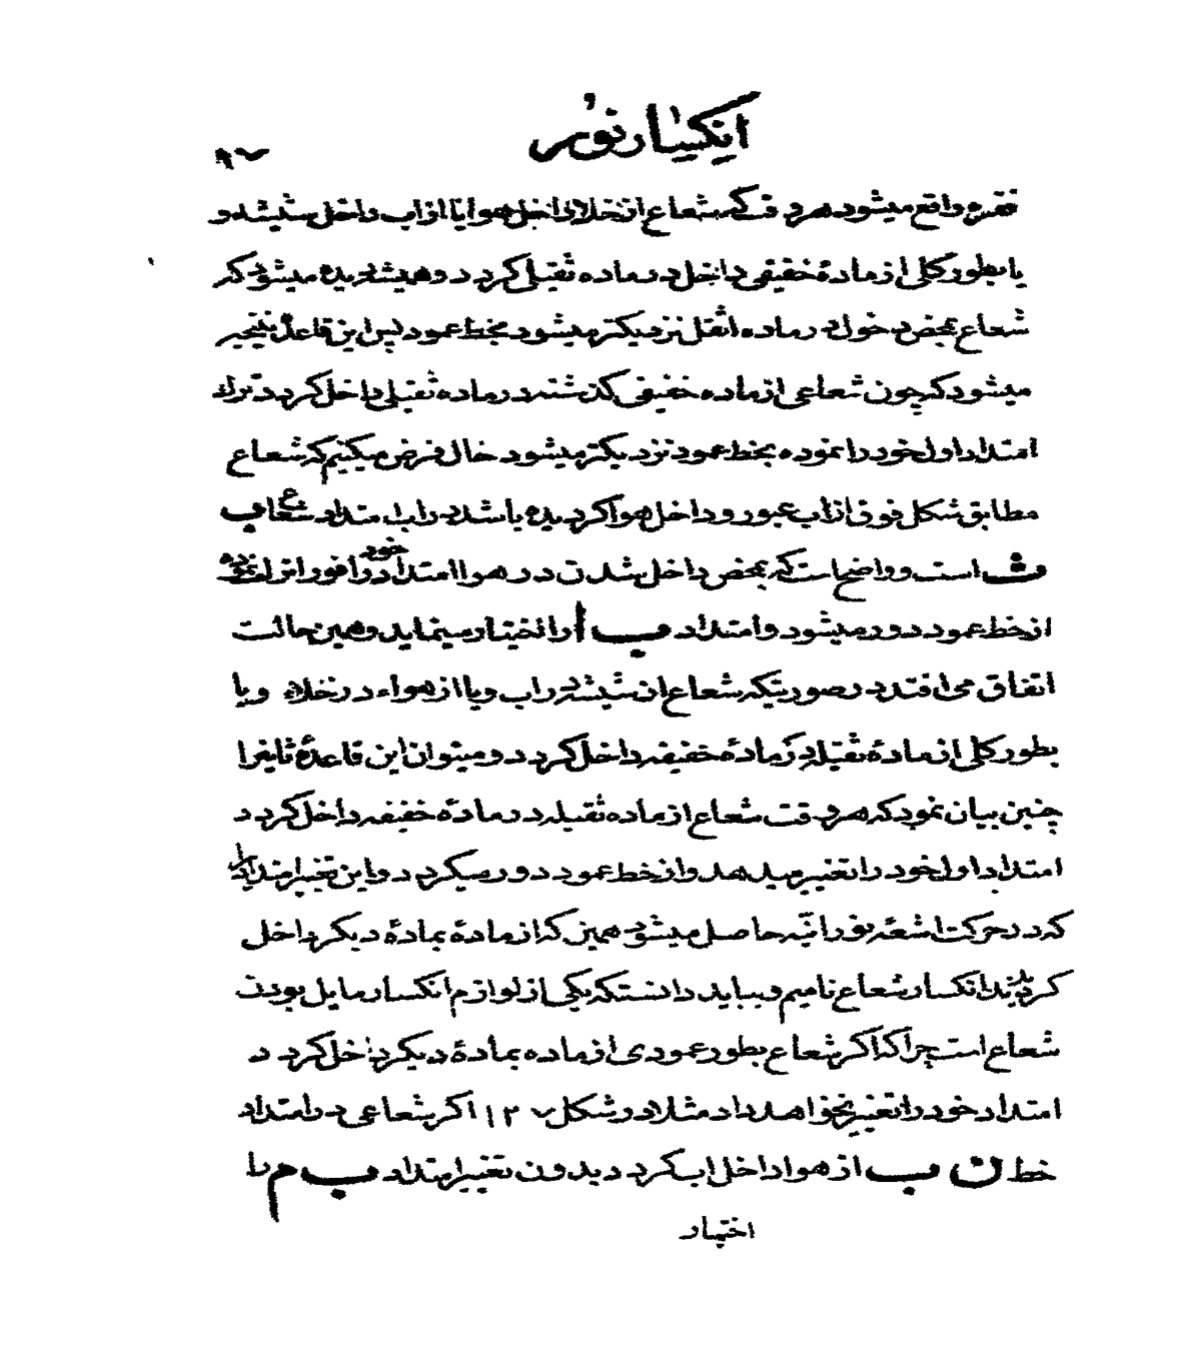 انکسار نور
٩٧
فقره واقع میشود هر وقت که شعاع از خلا داخل هوا یا از اب داخل شیشه و
یا بطور کلی از مادهٔ خفیفی داخل در ماده ثقیلی کردد و همیشه دیده میشود که
شعاع بمحض دخول در ماده اثقل نزدیکتر میشود بخط عمود پس این قاعده نتیجه
میشود که چون شعاعی از ماده خفیفی کذشته در ماده ثقیلی داخل کردد ترک
امتداد اول خود را نموده بخط عمود نزدیکتر میشود حال فرض میکنیم که شعاع
مطابق شکل فوق از اب عبور و داخل هوا کردیده باشد در اب امتداد شعاع ب
ث است و واضح است که بمحض داخل شدن در هوا امتداد خود را فورا ترک نموده
از خط عمود دور میشود و امتداد ب ا را اختیار مینماید و همین حالت
اتفاق می افتد در صورتیکه شعاع از شیشه در اب و یا از هواء در خلاء و یا
بطور کلی از مادهٔ ثقیله در مادهٔ خفیفه داخل کردد و میتوان این قاعدهٔ ثانی را
چنین بیان نمود که هر وقت شعاع از ماده ثقیله در مادهٔ خفیفه داخل کردد
امتداد اول خود را تغییر میدهد و از خط عمود دور میکردد و این تغییر امتداد را
که در حرکت اشعّه نورانیّه حاصل میشود همین که از مادهٔ بمادهٔ دیکر داخل
کردیدند انکسار شعاع نامیم و بباید دانست که یکی از لوازم انکسار مایل بودن
شعاع است چرا که اکر شعاع بطور عمودی از ماده بمادهٔ دیکر داخل کردد
امتداد خود را تغییر نخواهد داد مثلا در شکل ١٢٧ اکر شعاعی در امتداد
خط ن ب از هوا داخل اب کردد بدون تغییر امتداد ب م را
اختیار